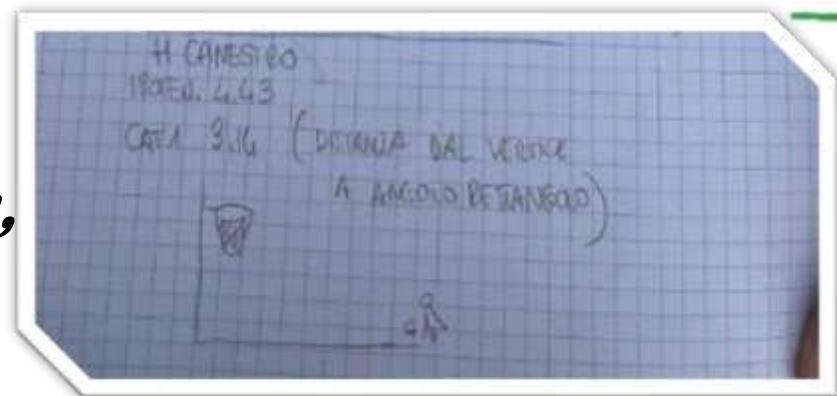 H CANESTRO
IPOTEN. 4.43
CAT.1 3.14 (DISTANZA DAL VERTICE
A ANGOLO RETTANGOLO)